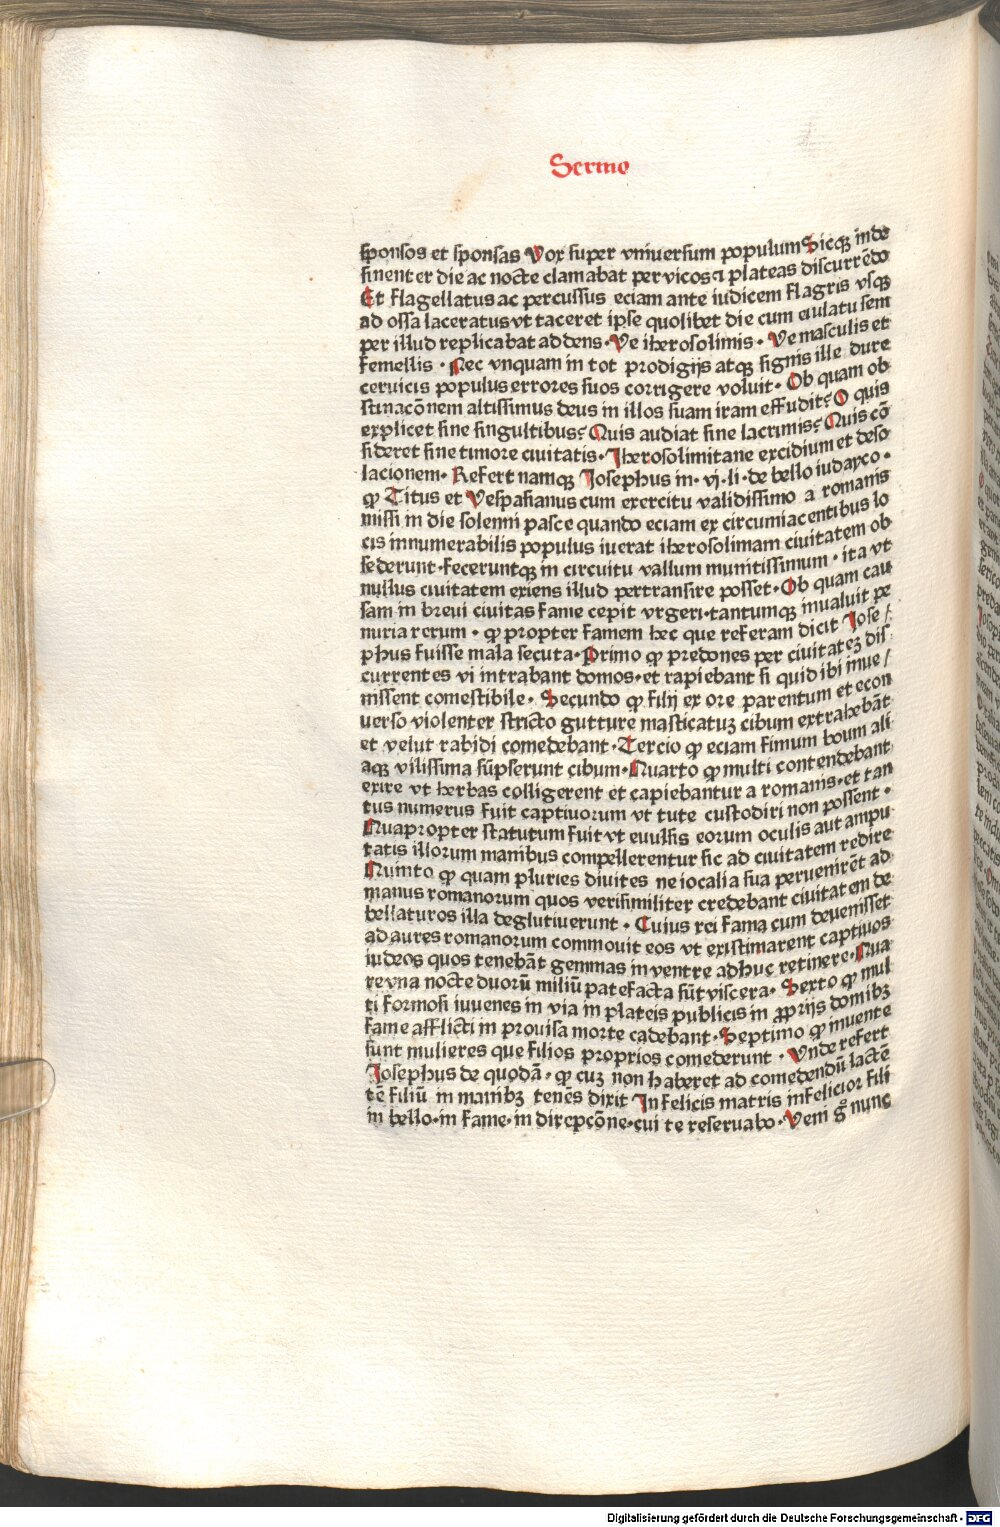 Sermo
sponsos et sponsas Vox super vniuersum populum Sicqꝫ inde
sinenter die ac nocte clamabat per vicos ⁊ plateas discurrēdo
Et flagellatus ac percussus eciam ante iudicem flagris vsqꝫ
ad ossa laceratus vt taceret ipse quolibet die cum eiulatu sem
per illud replicabat addens · Ve iherosolimis · Ve masculis et
femellis · Nec vnquam in tot prodigijs atqꝫ signis ille dure
ceruicis populus errores suos corrigere voluit · Ob quam ob
stinacōnem altissimus deus in illos suam iram effudit? O quis
explicet sine singultibus? Quis audiat sine lacrimis? Quis cō
sideret sine timore ciuitatis · Iherosolimitane excidium et deso
lacionem · Refert namqꝫ Josephus in · vj · li · de bello iudayco ·
ꝙ Titus et Vespasianus cum exercitu validissimo a romanis
missi in die solenni pasce quando eciam ex circumiacentibus lo
cis innumerabilis populus iuerat iherosolimam ciuitatem ob
sederunt · feceruntqꝫ in circuitu vallum munitissimum · ita vt
nullus ciuitatem exiens illud pertransire posset · Ob quam cau
sam in breui ciuitas fame cepit vrgeri · tantumqꝫ inualuit pe
nuria rerum · ꝙ propter famem hec que referam dicit Jose /
phus fuisse mala secuta · Primo ꝙ predones per ciuitateꝫ dis
currentes vi intrabant domos · et rapiebant si quid ibi inue /
nissent comestibile · Secundo ꝙ filij ex ore parentum et econ
uerso violenter stricto gutture masticatuꝫ cibum extrahebāt
et velut rabidi comedebant · Tercio ꝙ eciam fimum boum ali
aqꝫ vilissima sūpserunt cibum · Quarto ꝙ multi contendebant
exire vt herbas colligerent et capiebantur a romanis · et tan
tus numerus fuit captiuorum vt tute custodiri non possent ·
Quapropter statutum fuit vt euulsis eorum oculis aut ampu
tatis illorum manibus compellerentur sic ad ciuitatem redire
Quinto ꝙ quam pluries diuites ne iocalia sua peruenirēt ad
manus romanorum quos verisimiliter credebant ciuitatem de
bellaturos illa deglutiuerunt · Cuius rei fama cum deuenisset
ad aures romanorum commouit eos vt existimarent captiuos
iudeos quos tenebāt gemmas in ventre adhuc retinere · Qua
re vna nocte duorū miliū patefacta sūt viscera · Sexto ꝙ mul
ti formosi iuuenes in via in plateis publicis in ꝓprijs domibꝫ
fame afflicti in prouisa morte cadebant · Septimo ꝙ inuente
sunt mulieres que filios proprios comederunt · Vnde refert
Josephus de quodā · ꝙ cuꝫ non haberet ad comedendū lactē
tē filiū in manibꝫ tenēs dixit Infelicis matris infelicior fili
in bello · in fame · in direpcōne · cui te reseruabo · Veni gͦ nunc